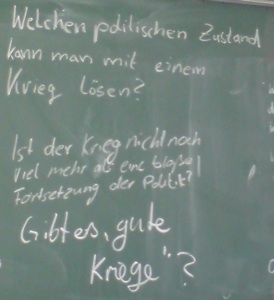 Welchen politischen Zustand
kann man mit einem
Krieg lösen?
Ist der Krieg nicht noch
viel mehr als eine bloße
Fortsetzung der Politik?
Gibt es „gute
Kriege“?